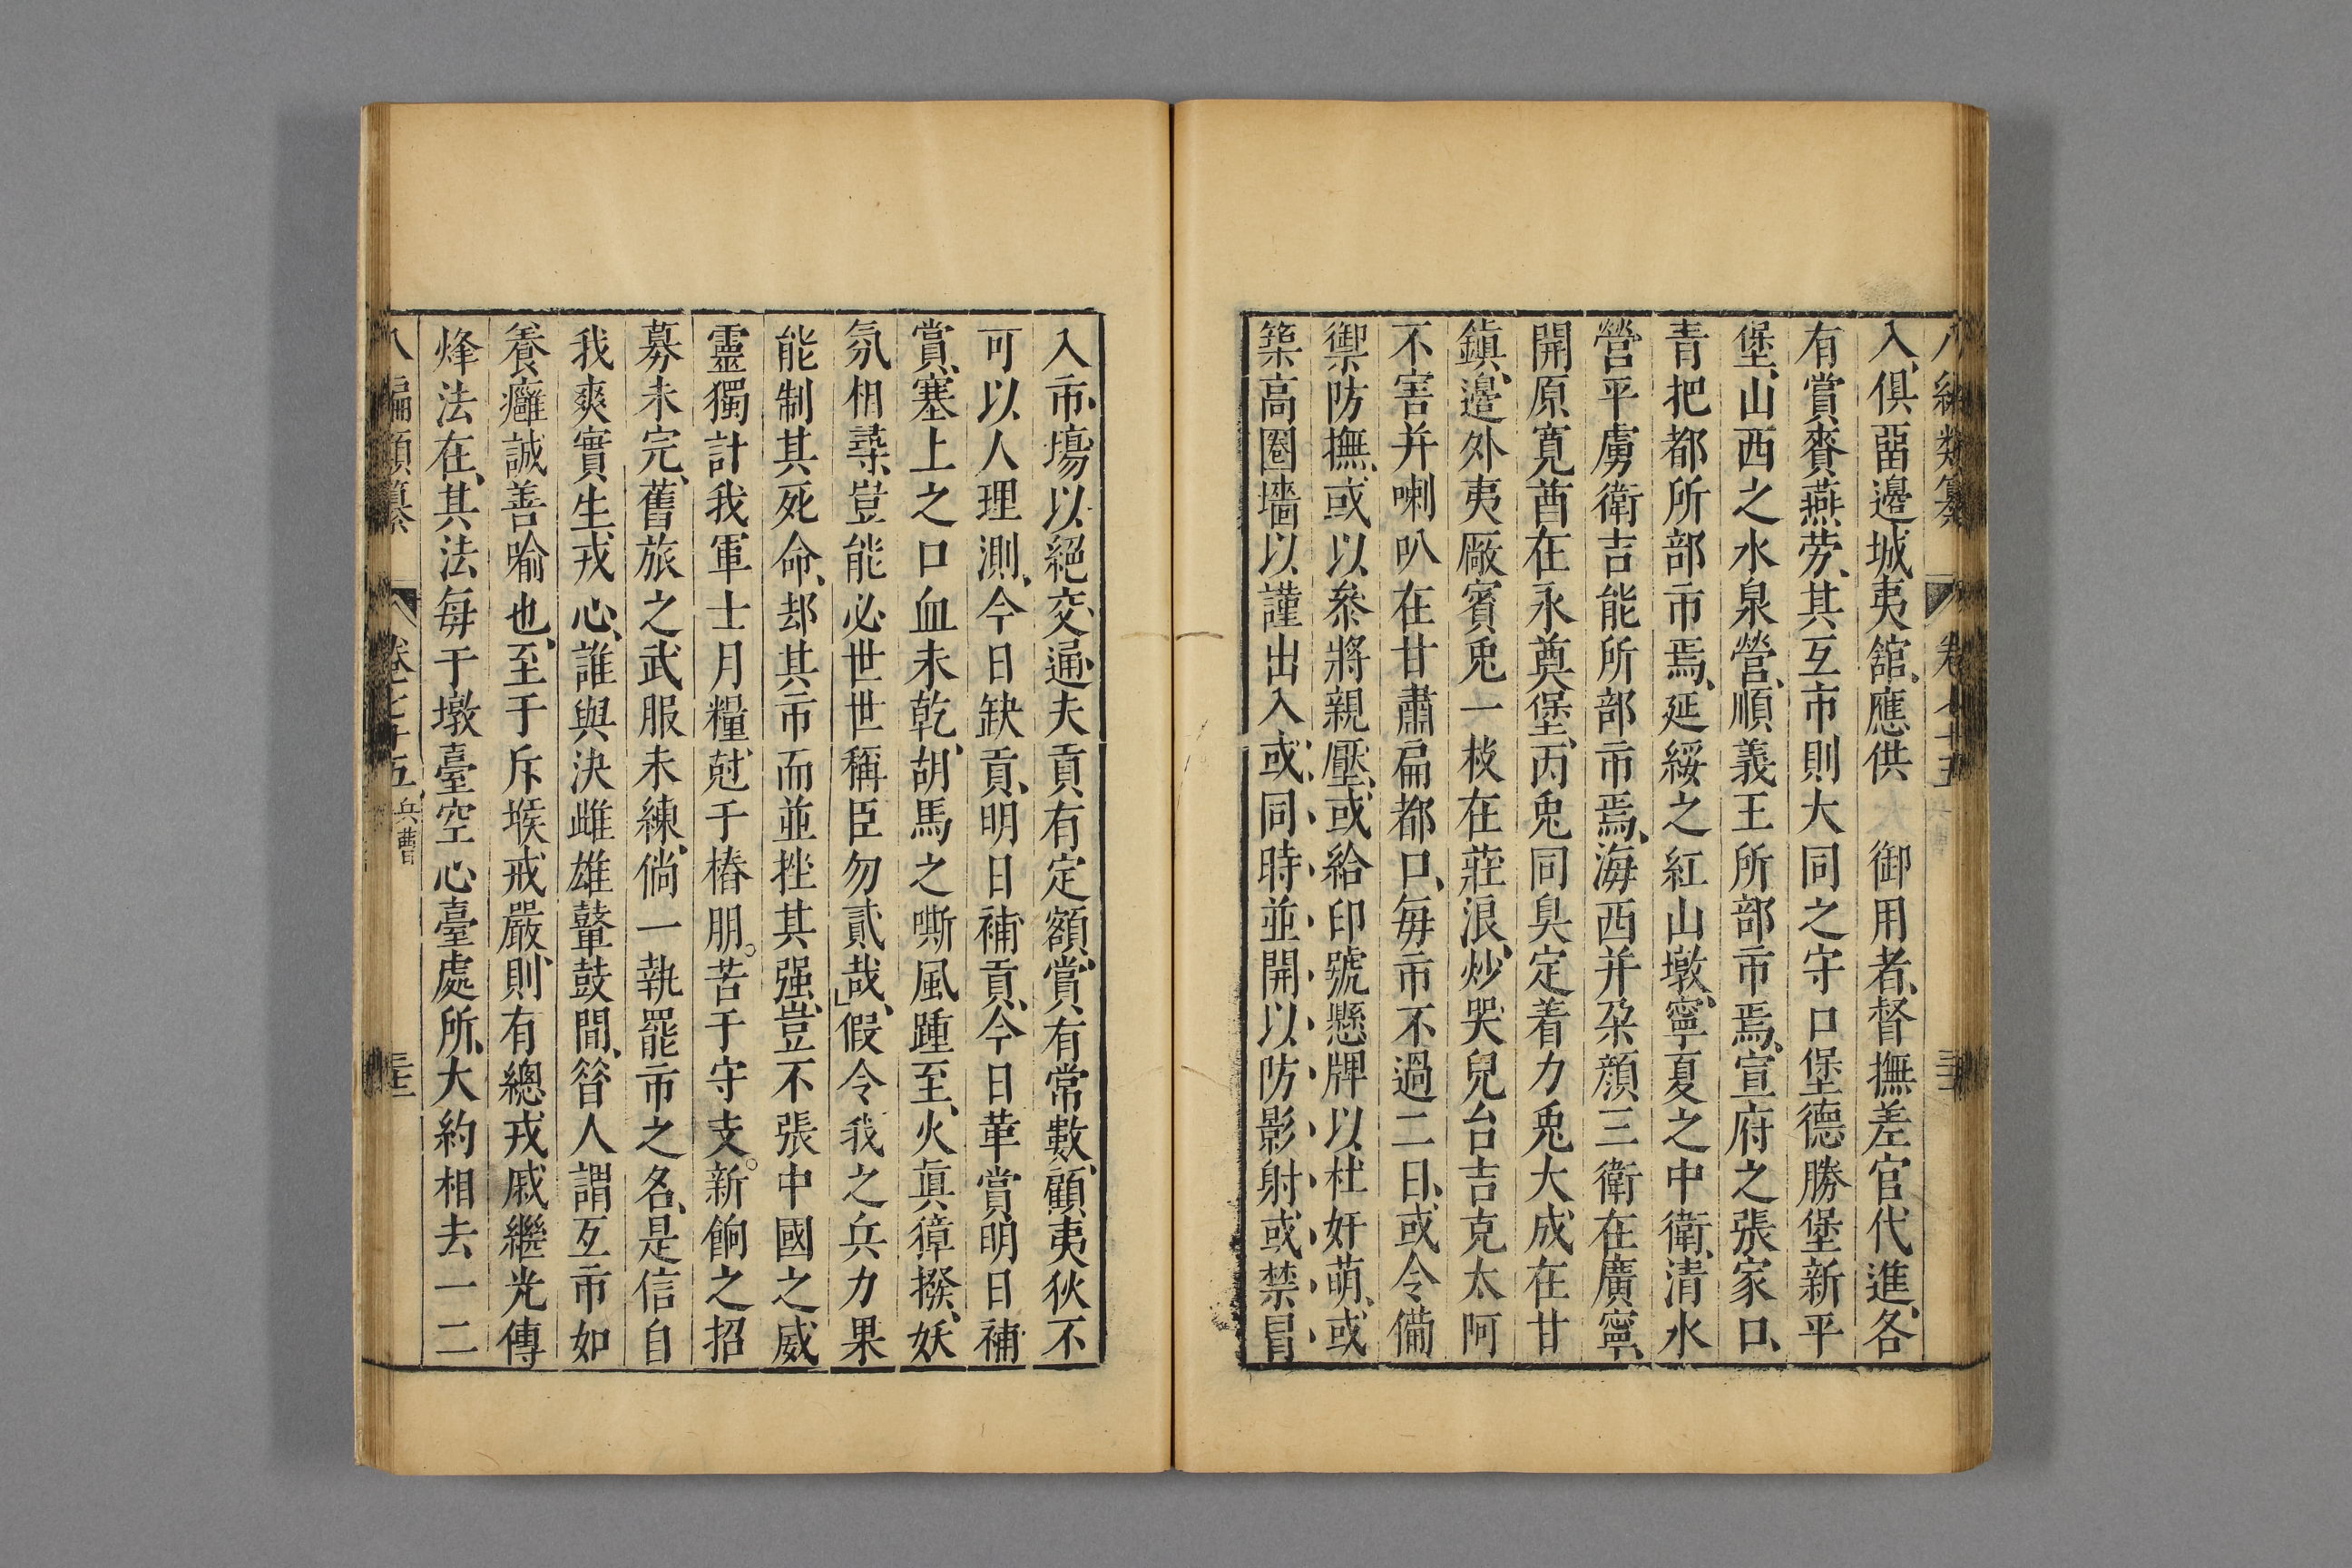 八編類纂 卷七十五
入、俱畱邊城夷舘、應供 御用者、督撫差官代進、各
有賞賚燕劳、其互市則大同之守口堡德勝堡新平
堡、山西之水泉營、順義王所部市焉、宣府之張家口、
青把都所部市焉、延綏之紅山墩、寧夏之中衛、清水
營平虜衛吉能所部市焉、海西并朶顔三衛在廣寧、
開原寛酋在永奠堡、丙兎同臭定着力兎大成在甘
鎮、邊外夷厰賓兎一枝在莊浪、炒哭兒台吉克太阿
不害并喇叭在甘肅扁都口、每市不過二日、或令備
禦防撫、或以叅將親壓、或給印號懸牌以杜奸萌、或
築高圈墻以謹出入、或同時並開以防影射、或禁冐
入市塲以絕交通、夫貢有定額、賞有常數、顧夷狄不
可以人理測、今日缺貢、明日補貢、今日革賞、明日補
賞、塞上之口血未乾、胡馬之嘶風踵至、火眞獐撥、妖
氛相尋、豈能必世世稱臣勿貳哉、假令我之兵力果
能制其死命、却其市而並挫其强、豈不張中國之威
靈、獨計我軍士月糧尅于椿朋。苦于守支。新餉之招
募未完、舊旅之武服未練、倘一執罷市之名、是信自
我爽實、生戎心、誰與決雌雄鼙鼓間、昝人謂互市如
養癰、誠善喻也、至于斥堠戒嚴、則有總戎戚繼光傳
烽法在、其法每于墩臺空心臺處所、大約相去一二
八編類纂 卷七十五 兵曹